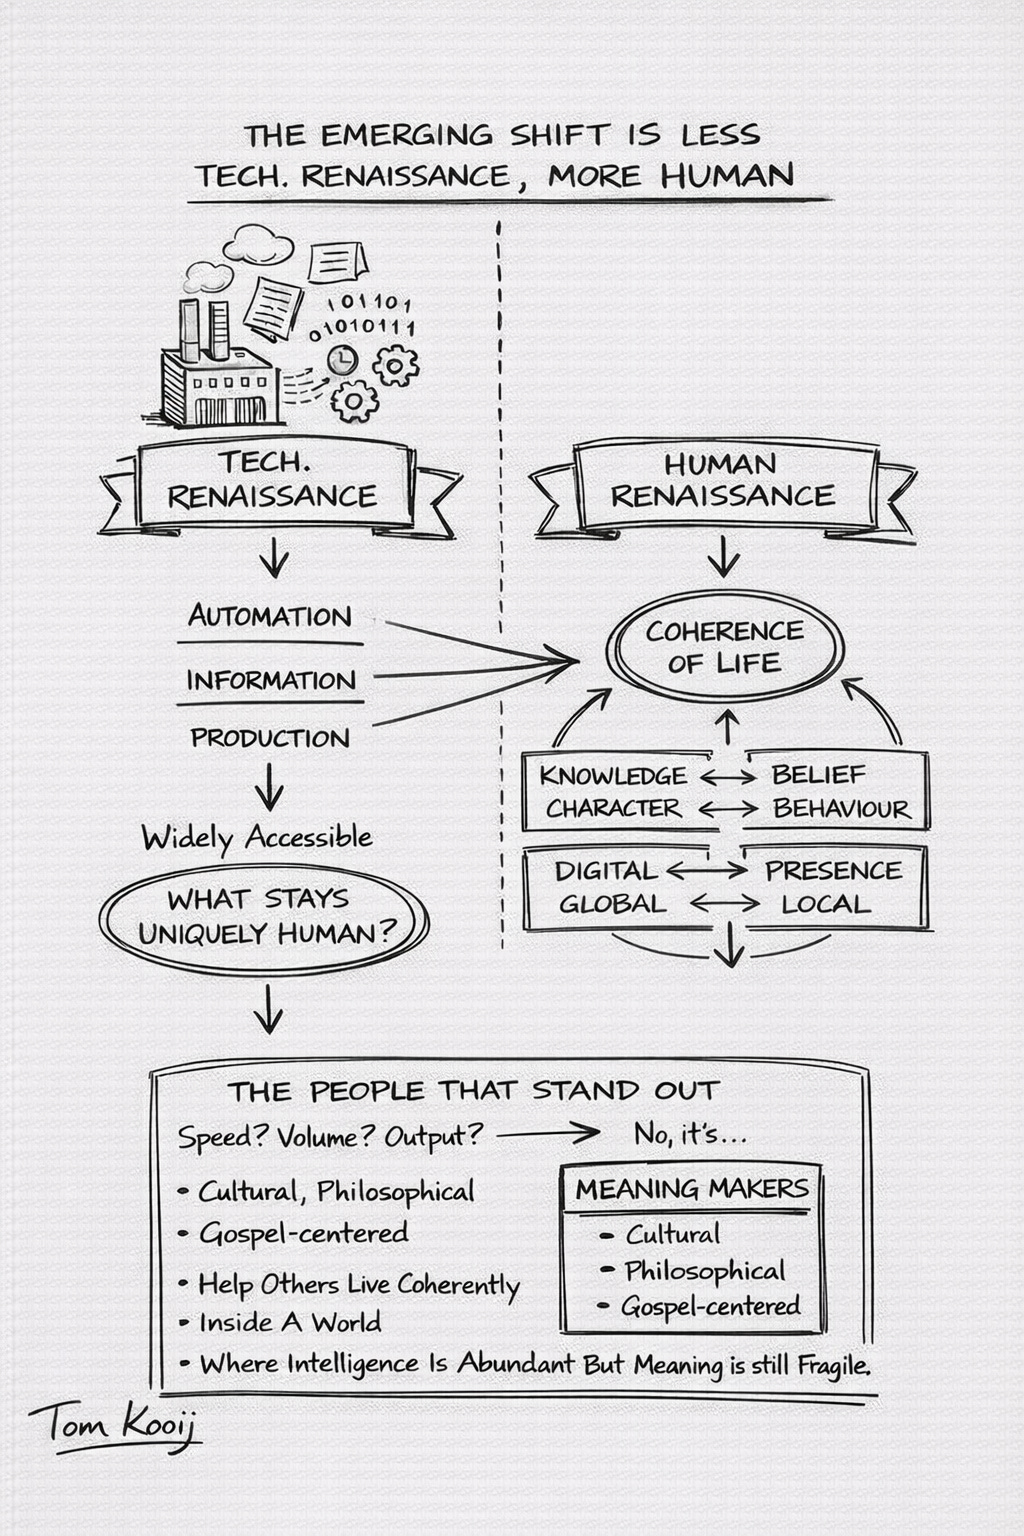 THE EMERGING SHIFT IS LESS
TECH. RENAISSANCE, MORE HUMAN
101101
01010111
TECH.
RENAISSANCE
AUTOMATION
INFORMATION
PRODUCTION
Widely Accessible
WHAT STAYS
UNIQUELY HUMAN?
HUMAN
RENAISSANCE
COHERENCE
OF LIFE
KNOWLEDGE ↔ BELIEF
CHARACTER ↔ BEHAVIOUR
DIGITAL ↔ PRESENCE
GLOBAL ↔ LOCAL
THE PEOPLE THAT STAND OUT
Speed? Volume? Output? → No, it's...
• Cultural, Philosophical
• Gospel-centered
• Help Others Live Coherently
• Inside A World
• Where Intelligence Is Abundant But Meaning is still Fragile.
MEANING MAKERS
- Cultural
- Philosophical
- Gospel-centered
Tom Kooij